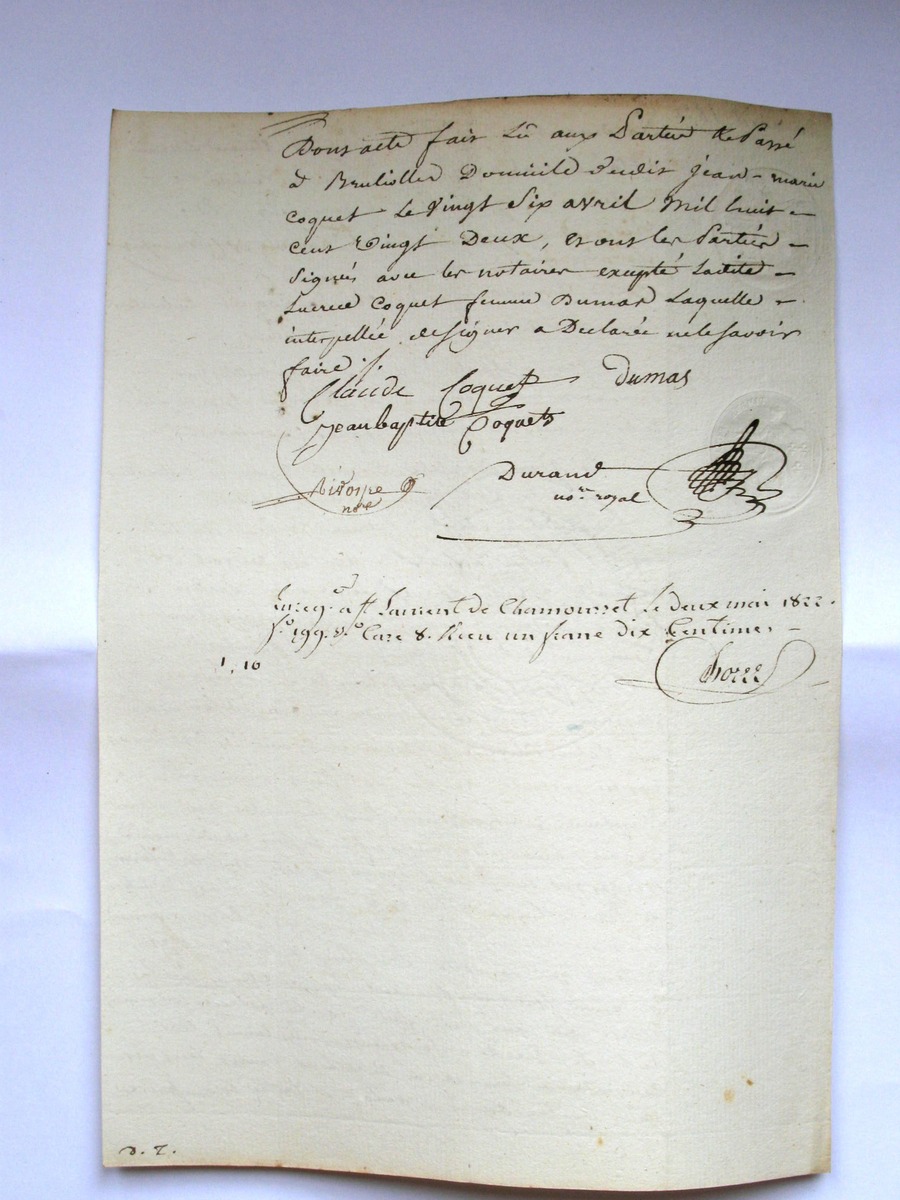 Dont acte fait Lû aux Parties & Passé
à Brulliolles Domicile dudit Jean-marie
Coquet Le Vingt Six avril Mil huit-
cent Vingt Deux, et ont les Parties-
Signés avec les notaires excepté Ladite-
Lucrece Coquet femme Dumas Laquelle-
interpellée de Signer a Declarée ne le Savoir
faire ./.
Claude Coquet Dumas
Jeanbaptite Coquet
nre
Durand
nore royal
Enreg.é a St Laurent de Chamousset Le deux mai 1822.
fo 199. Vo Case 8. Recu un franc dix Centimes-
1,10